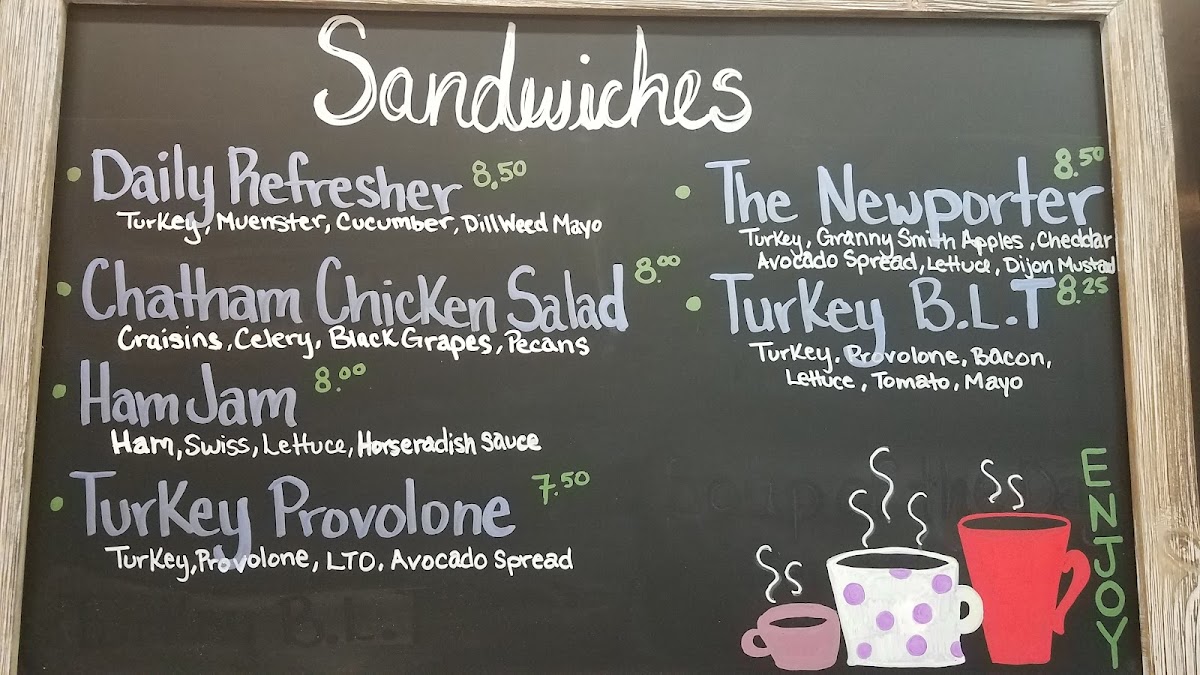 Sandwiches
Daily Refresher 8,50
Turkey, Muenster, Cucumber, Dill Weed Mayo
Chatham Chicken Salad 8.00
Craisins, Celery, Black Grapes, Pecans
Ham Jam 8.00
Ham, Swiss, Lettuce, Horseradish Sauce
Turkey Provolone 7.50
Turkey, Provolone, LTO, Avocado Spread
The Newporter 8.50
Turkey, Granny Smith Apples, Cheddar
Avocado Spread, Lettuce, Dijon Mustard
Turkey B.L.T 8.25
Turkey, Provolone, Bacon,
Lettuce, Tomato, Mayo
ENJOY